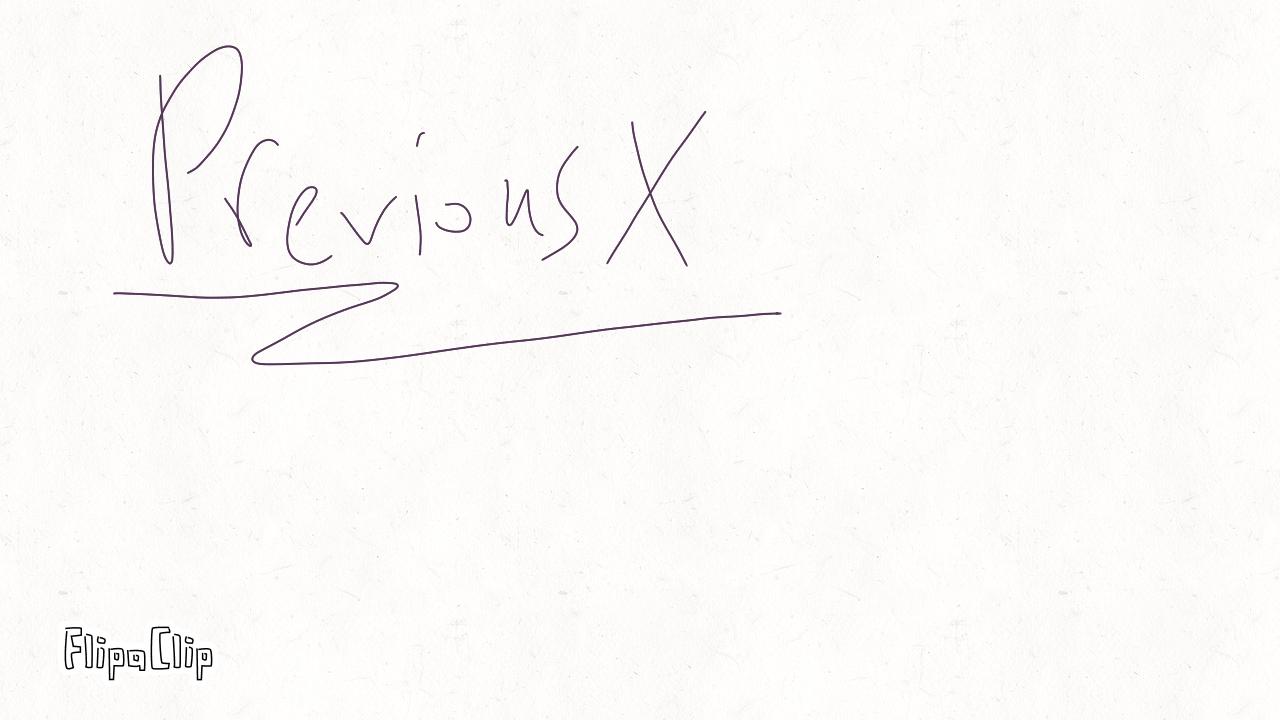 PreviousX
FlipaClip